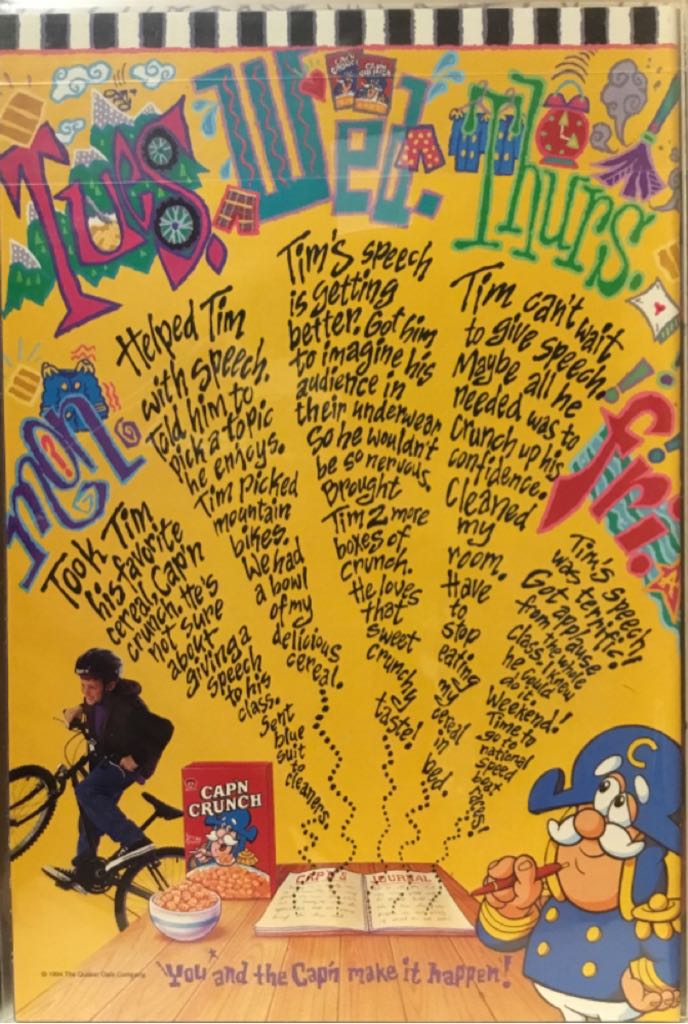 Mon.
Took Tim
his favorite
cereal, Cap'n
Crunch. He's
not sure
about
giving a
speech
to his
class.
Sent
blue
suit to
cleaners.
Tues.
Helped Tim
with speech.
Told him to
pick a topic
he enjoys.
Tim picked
mountain
bikes.
We had
a bowl
of my
delicious
cereal.
Wed.
Tim's speech
is getting
better. Got him
to imagine his
audience in
their underwear
so he wouldn't
be so nervous.
Brought
Tim 2 more
boxes of
Crunch.
He loves
that
sweet
crunchy
taste!
Thurs.
Tim can't wait
to give speech.
Maybe all he
needed was to
Crunch up his
confidence.
Cleaned
my
room.
Have
to
stop
eating
my
cereal in
bed.
Fri.
Tim's speech
was terrific!
Got applause
from the whole
class. I knew
he could
do it.
Weekend!
Time to
go to
national
speed
boat
races!
CAPN
CRUNCH
CAP'N'S JOURNAL
© 1994 The Quaker Oats Company.
"You" and the Cap'n make it happen!